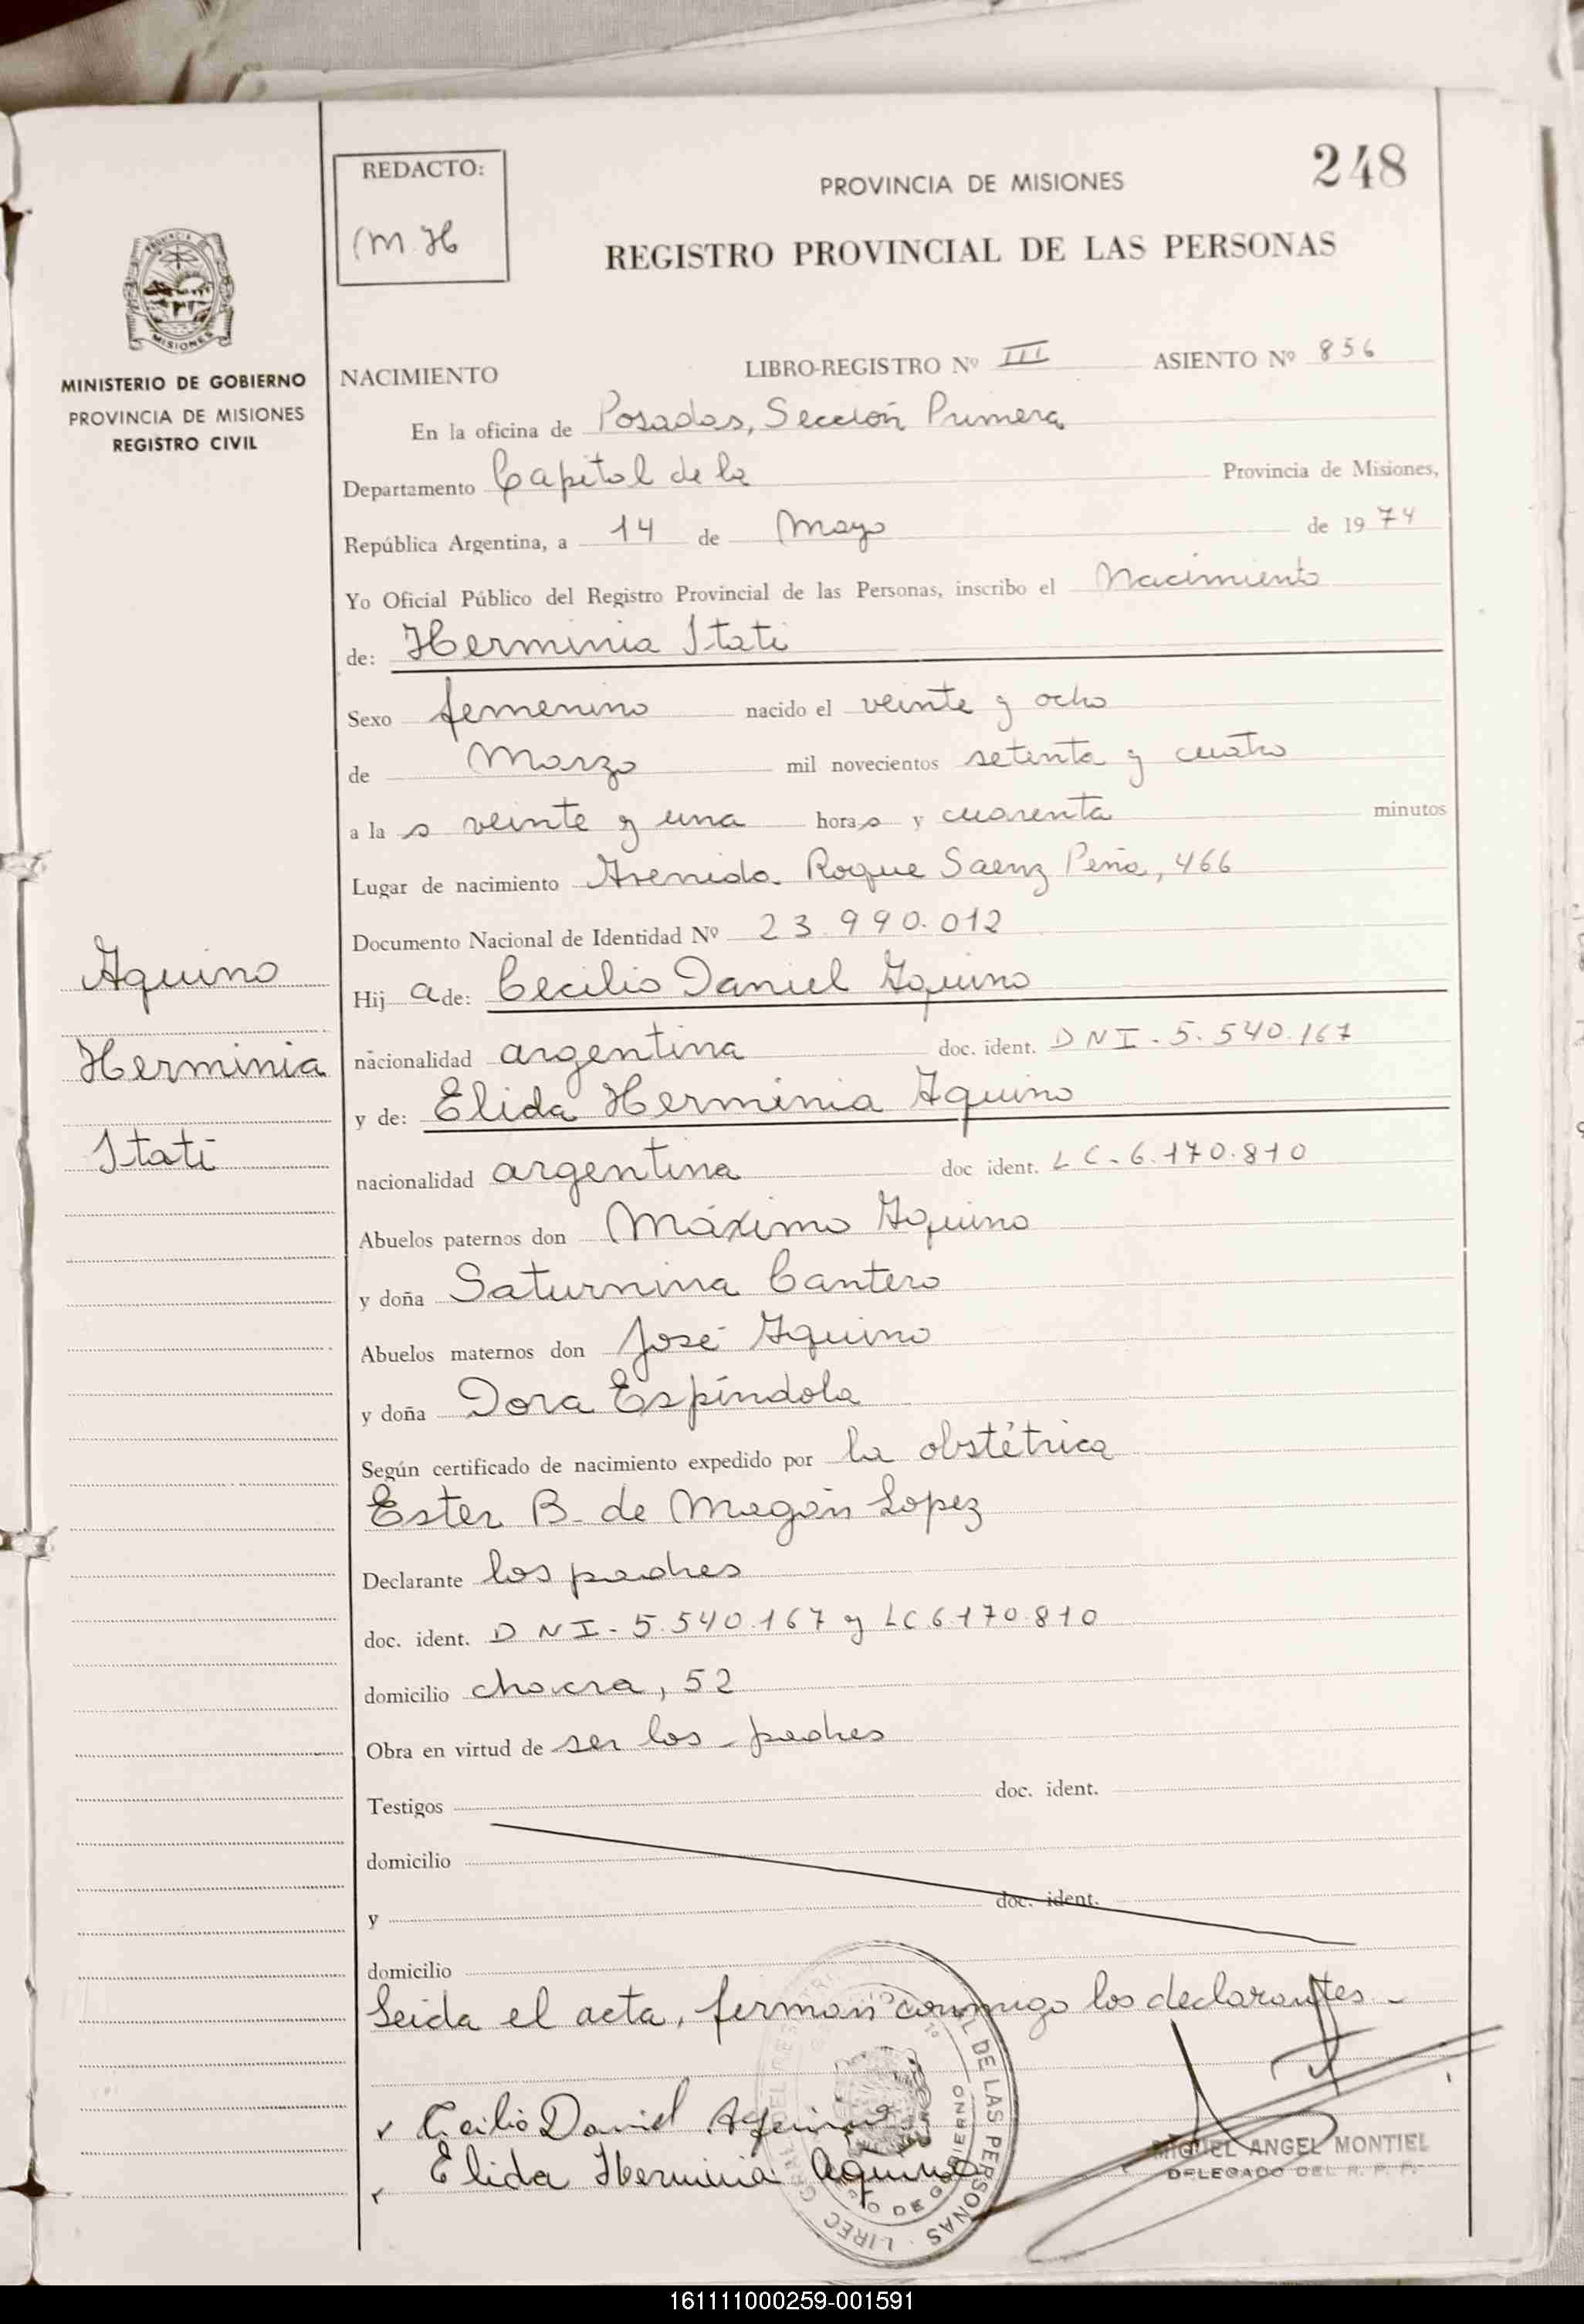 248
REDACTO:
M.H
PROVINCIA DE MISIONES
REGISTRO PROVINCIAL DE LAS PERSONAS
PROVINCIA
MISIONES
MINISTERIO DE GOBIERNO
PROVINCIA DE MISIONES
REGISTRO CIVIL
NACIMIENTO LIBRO-REGISTRO Nº III ASIENTO Nº 856
En la oficina de Posadas, Sección Primera
Departamento Capital de la Provincia de Misiones,
República Argentina, a 14 de Mayo de 1974
Yo Oficial Público del Registro Provincial de las Personas, inscribo el Nacimiento
de: Herminia Itati
Sexo femenino nacido el veinte y ocho
de Marzo mil novecientos setenta y cuatro
a la s veinte y una horas y cuarenta minutos
Lugar de nacimiento Avenida Roque Saenz Peña, 466
Documento Nacional de Identidad Nº 23.990.012
Aquino
Herminia
Itati
Hij a de: Cecilio Daniel Aquino
nacionalidad argentina doc. ident. DNI-5.540.167
y de: Elida Herminia Aquino
nacionalidad argentina doc ident. LC-6.170.810
Abuelos paternos don Máximo Aquino
y doña Saturnina Cantero
Abuelos maternos don José Aquino
y doña Dora Espíndola
Según certificado de nacimiento expedido por la obstétrica
Ester B. de Lopez
Declarante los padres
doc. ident. DNI-5.540.167 y LC 6.170.810
domicilio chacra, 52
Obra en virtud de ser los padres
Testigos doc. ident.
domicilio
y doc. ident.
domicilio
Leida el acta, firman conmigo los declarantes.-
Cecilio Daniel Aquino
Elida Herminia Aquino
DE LAS PERSONAS
DE GOBIERNO
MIGUEL ANGEL MONTIEL
DELEGADO DEL R. P. P.
161111000259-001591